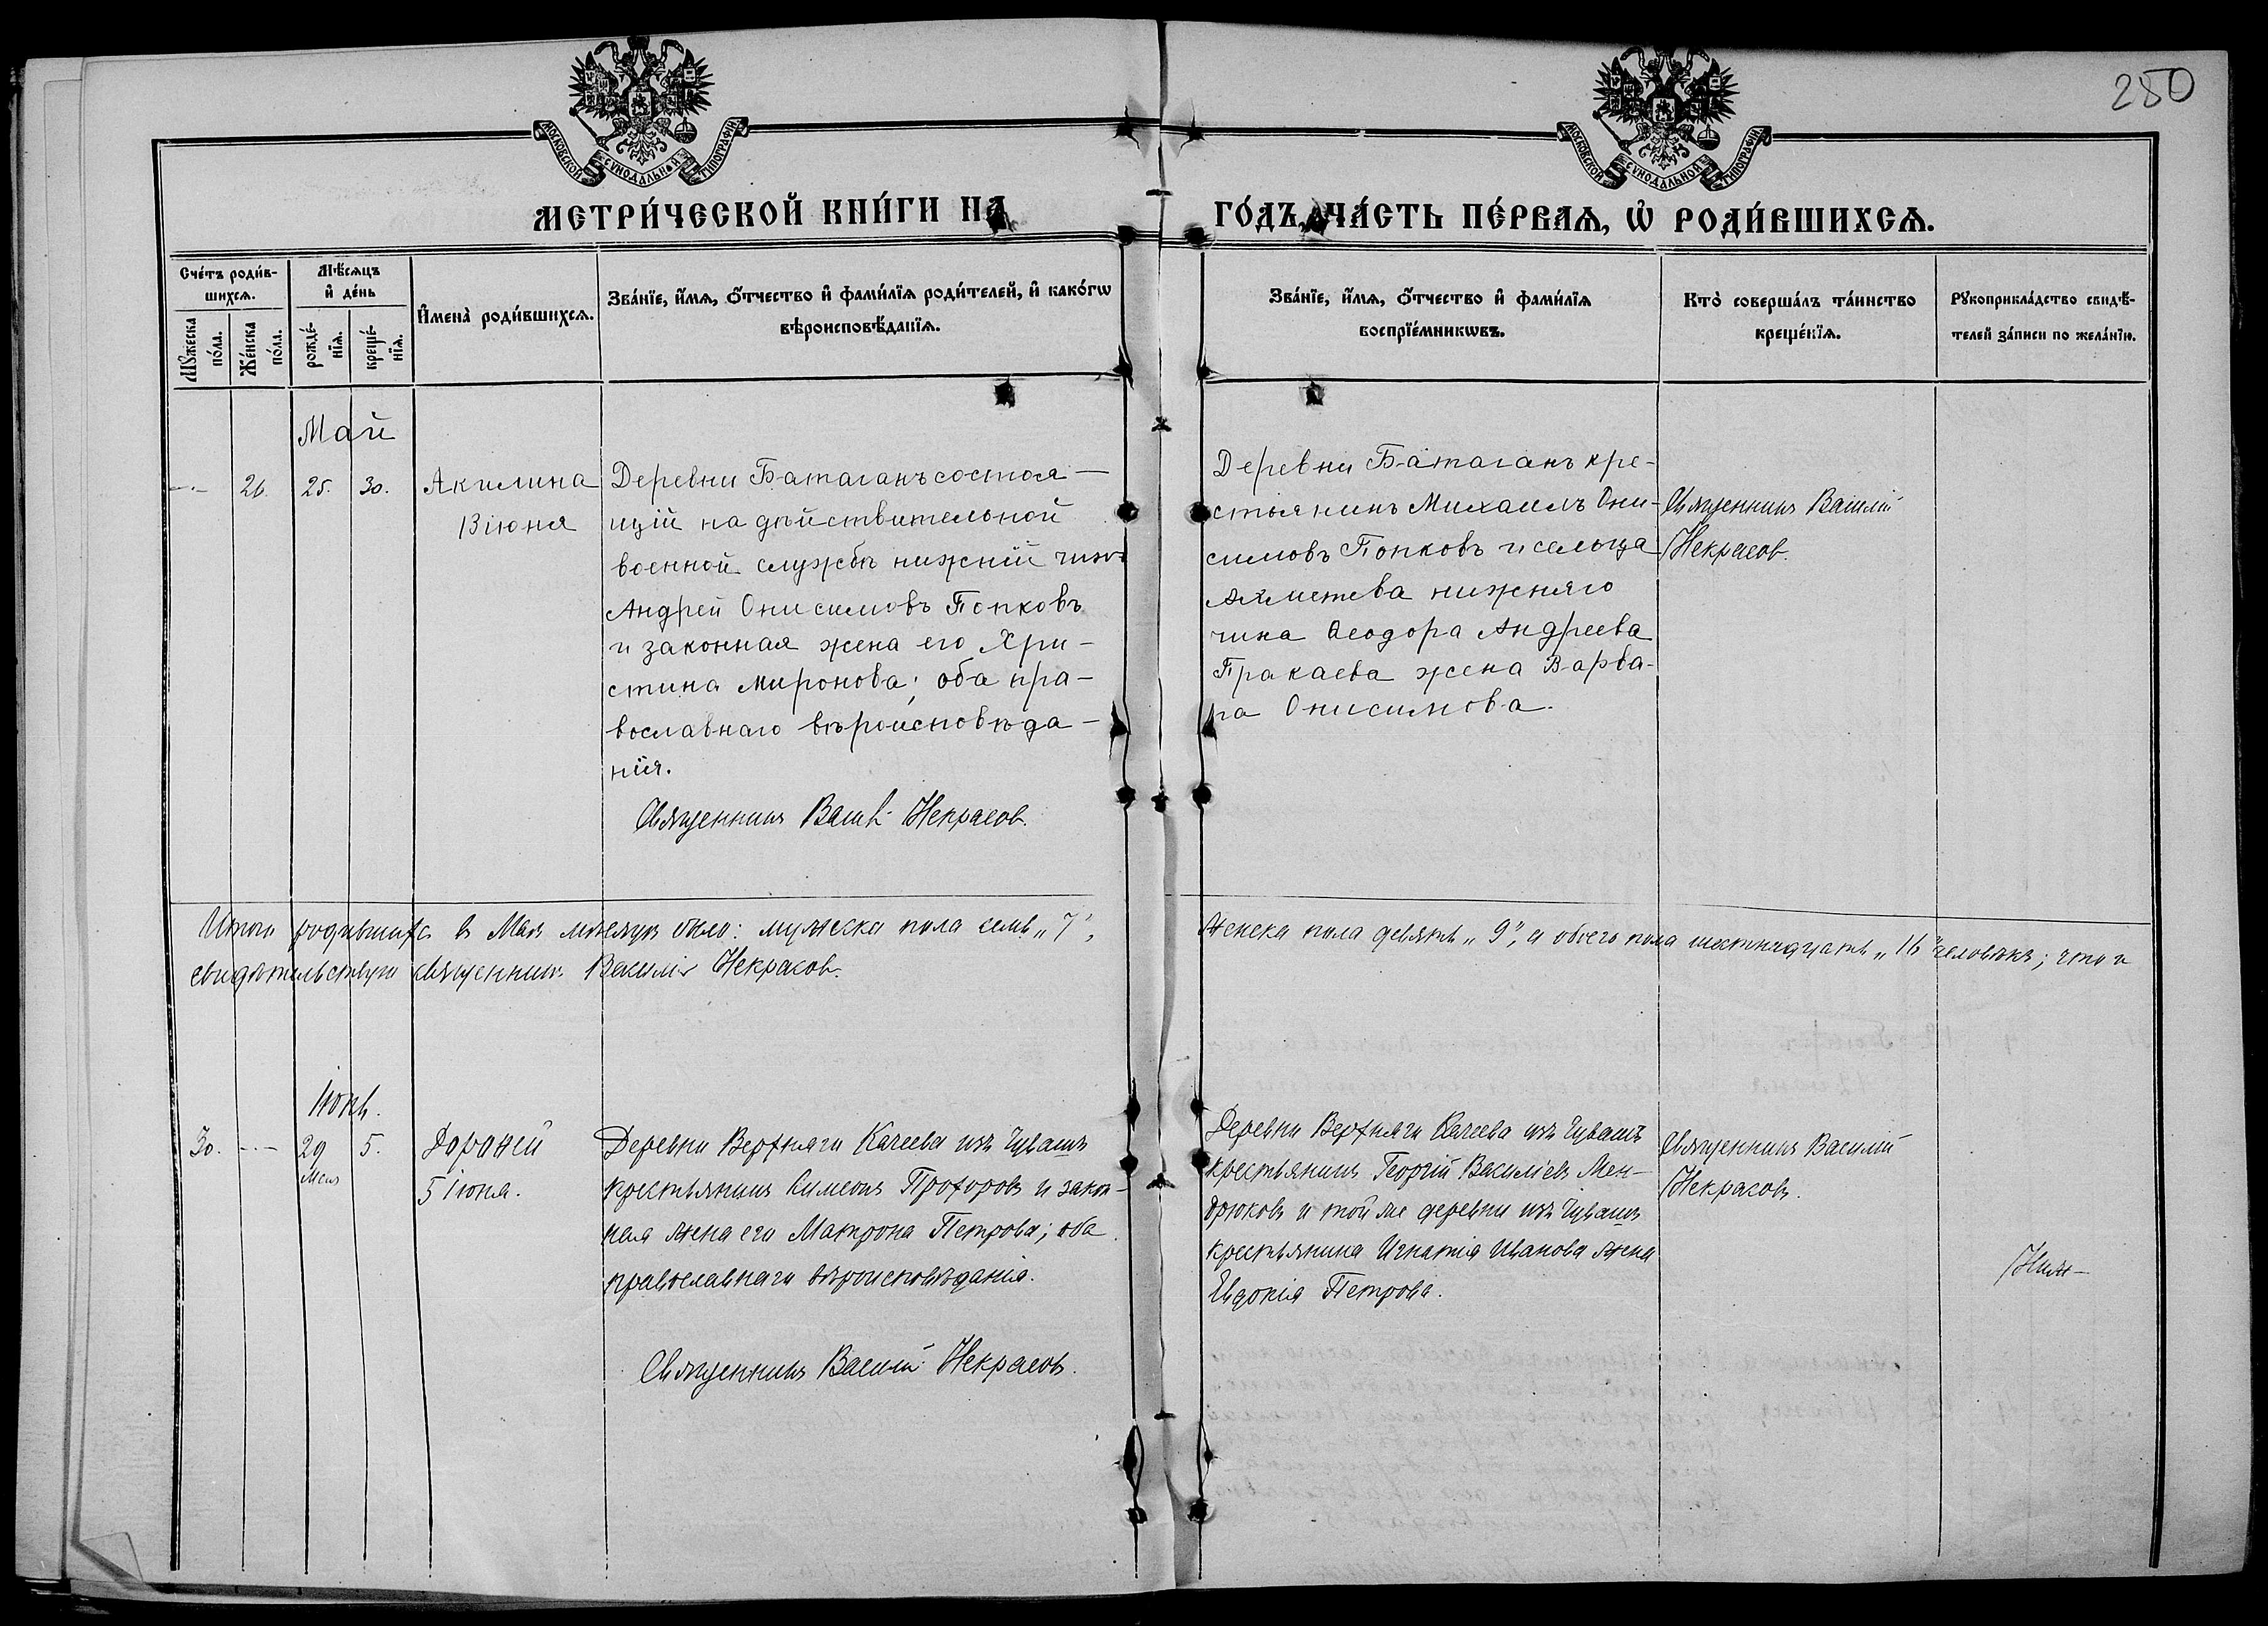 250
МОСКОВСКОЙ СѴНОДАЛЬНОЙ ТИПОГРАФІИ
МОСКОВСКОЙ СѴНОДАЛЬНОЙ ТИПОГРАФІИ
МЕТРИ́ЧЕСКОЙ КНИ́ГИ НА
ГО́ДЪ, ЧА́СТЬ ПЕ́РВАѦ, Ѡ҆ РОДИ́ВШИХСѦ.
Сче́тъ роди́в-
шихсѧ.
Мꙋ́жеска
по́ла.
Же́нска
по́ла.
Мѣ́сѧцъ
и҆ де́нь
рожде́-
нїѧ.
креще́-
нїѧ.
И҆мена̀ роди́вшихсѧ.
Зва́нїе, и҆́мѧ, ѻ҆́тчество и҆ фами́лїѧ роди́телей, и҆ како́гѡ
вѣроисповѣ́данїѧ.
Зва́нїе, и҆́мѧ, ѻ҆́тчество и҆ фами́лїѧ
воспрїе́мникѡвъ.
Кто̀ соверша́лъ та́инство
креще́нїѧ.
Рꙋкоприкла́дство свидѣ́-
телей за́писи по жела́нїю.
Май
26. 25. 30.
Акилина
13 іюня
Деревни Батаганъ состоя-
щій на дѣйствительной
военной службѣ нижній чинъ
Андрей Онисимовъ Попковъ
и законная жена его Хри-
стина Миронова; оба пра-
вославнаго вѣроисповѣда-
нія.
Священникъ Васил. Некрасов.
Деревни Батаганъ кре-
стьянинъ Михаилъ Они-
симовъ Попковъ и сельца
Ахметева нижняго
чина Ѳеодора Андреева
Пракаева жена Варва-
ра Онисимова.
Священникъ Василій
Некрасов.
Итого родившихся въ Маѣ мѣсяцѣ было: мужеска пола семь „7“,
женска пола девять „9“, а обоего пола шестнадцать „16“ человѣкъ; что и
свидѣтельствую священникъ Василій Некрасовъ.
Іюнь.
30. 29 мая 5.
Дороѳей
5 Іюня.
Деревни Верхняго Качеева изъ Чувашъ
крестьянинъ Симеонъ Прохоровъ и закон-
ная жена его Матрона Петрова; оба
православнаго вѣроисповѣданія.
Священникъ Василій Некрасовъ.
Деревни Верхняго Качеева изъ Чувашъ
крестьянинъ Георгій Василіевъ Мен-
дрюковъ и той же деревни изъ Чувашъ
крестьянина Игнатія Иванова жена
Евдокія Петрова.
Священникъ Василій
Некрасовъ.